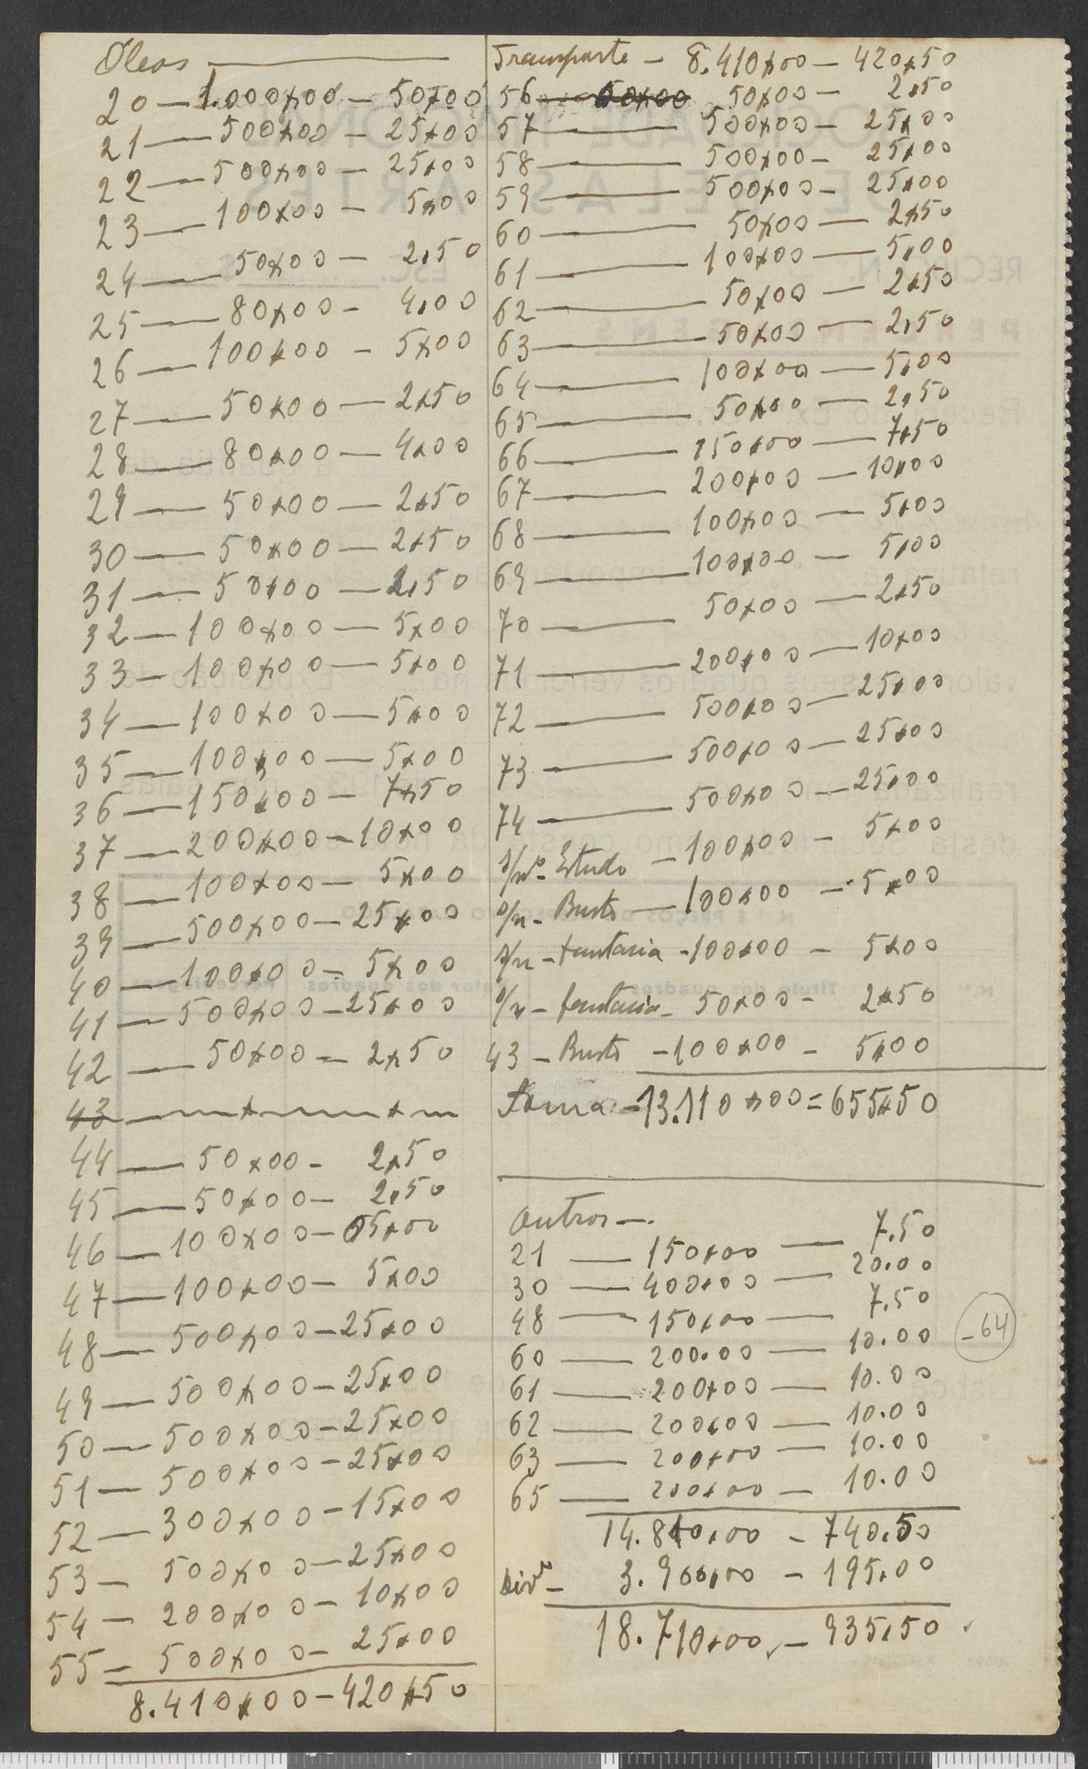 Óleos
20 — 1.000$00 — 50$00
21 — 500$00 — 25$00
22 — 500$00 — 25$00
23 — 100$00 — 5$00
24 — 50$00 — 2$50
25 — 80$00 — 4$00
26 — 100$00 — 5$00
27 — 50$00 — 2$50
28 — 80$00 — 4$00
29 — 50$00 — 2$50
30 — 50$00 — 2$50
31 — 50$00 — 2$50
32 — 100$00 — 5$00
33 — 100$00 — 5$00
34 — 100$00 — 5$00
35 — 100$00 — 5$00
36 — 150$00 — 7$50
37 — 200$00 — 10$00
38 — 100$00 — 5$00
39 — 500$00 — 25$00
40 — 100$00 — 5$00
41 — 500$00 — 25$00
42 — 50$00 — 2$50
43
44 — 50$00 — 2$50
45 — 50$00 — 2$50
46 — 100$00 — 5$00
47 — 100$00 — 5$00
48 — 500$00 — 25$00
49 — 500$00 — 25$00
50 — 500$00 — 25$00
51 — 500$00 — 25$00
52 — 300$00 — 15$00
53 — 500$00 — 25$00
54 — 200$00 — 10$00
55 — 500$00 — 25$00
8.410$00 — 420$50
Transporte — 8.410$00 — 420$50
56 — 50$00 50$00 — 2$50
57 — 500$00 — 25$00
58 — 500$00 — 25$00
59 — 500$00 — 25$00
60 — 50$00 — 2$50
61 — 100$00 — 5$00
62 — 50$00 — 2$50
63 — 50$00 — 2$50
64 — 100$00 — 5$00
65 — 50$00 — 2$50
66 — 150$00 — 7$50
67 — 200$00 — 10$00
68 — 100$00 — 5$00
69 — 100$00 — 5$00
70 — 50$00 — 2$50
71 — 200$00 — 10$00
72 — 500$00 — 25$00
73 — 500$00 — 25$00
74 — 500$00 — 25$00
s/nº Estudo — 100$00 — 5$00
s/n — Busto — 100$00 — 5$00
s/n — fantasia — 100$00 — 5$00
s/n — fantasia — 50$00 — 2$50
43 — Busto — 100$00 — 5$00
Soma — 13.110$00 = 655$50
Outros —.
21 — 150$00 — 7.50
30 — 400$00 — 20.00
48 — 150$00 — 7.50
60 — 200.00 — 10.00
61 — 200$00 — 10.00
62 — 200$00 — 10.00
63 — 200$00 — 10.00
65 — 200$00 — 10.00
-64
14.810$00 — 740.50
Divº — 3.900$00 — 195.00
18.710$00 — 935$50